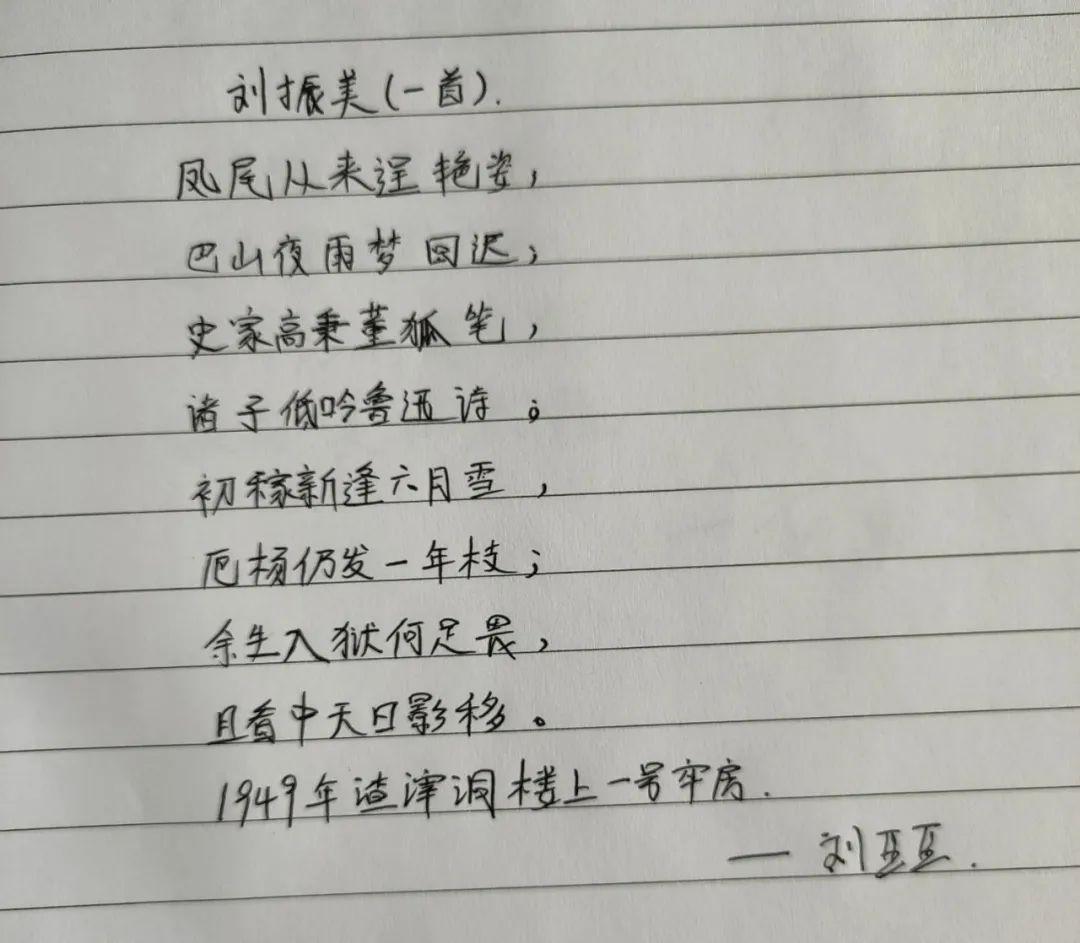 刘振美(一首).
凤尾从来逞艳姿，
巴山夜雨梦回迟；
史家高秉董狐笔，
诸子低吟鲁迅诗；
初稼新逢六月雪，
厄杨仍发一年枝；
余生入狱何足畏，
且看中天日影移。
1949年渣滓洞楼上一号牢房.
— 刘亙亙.